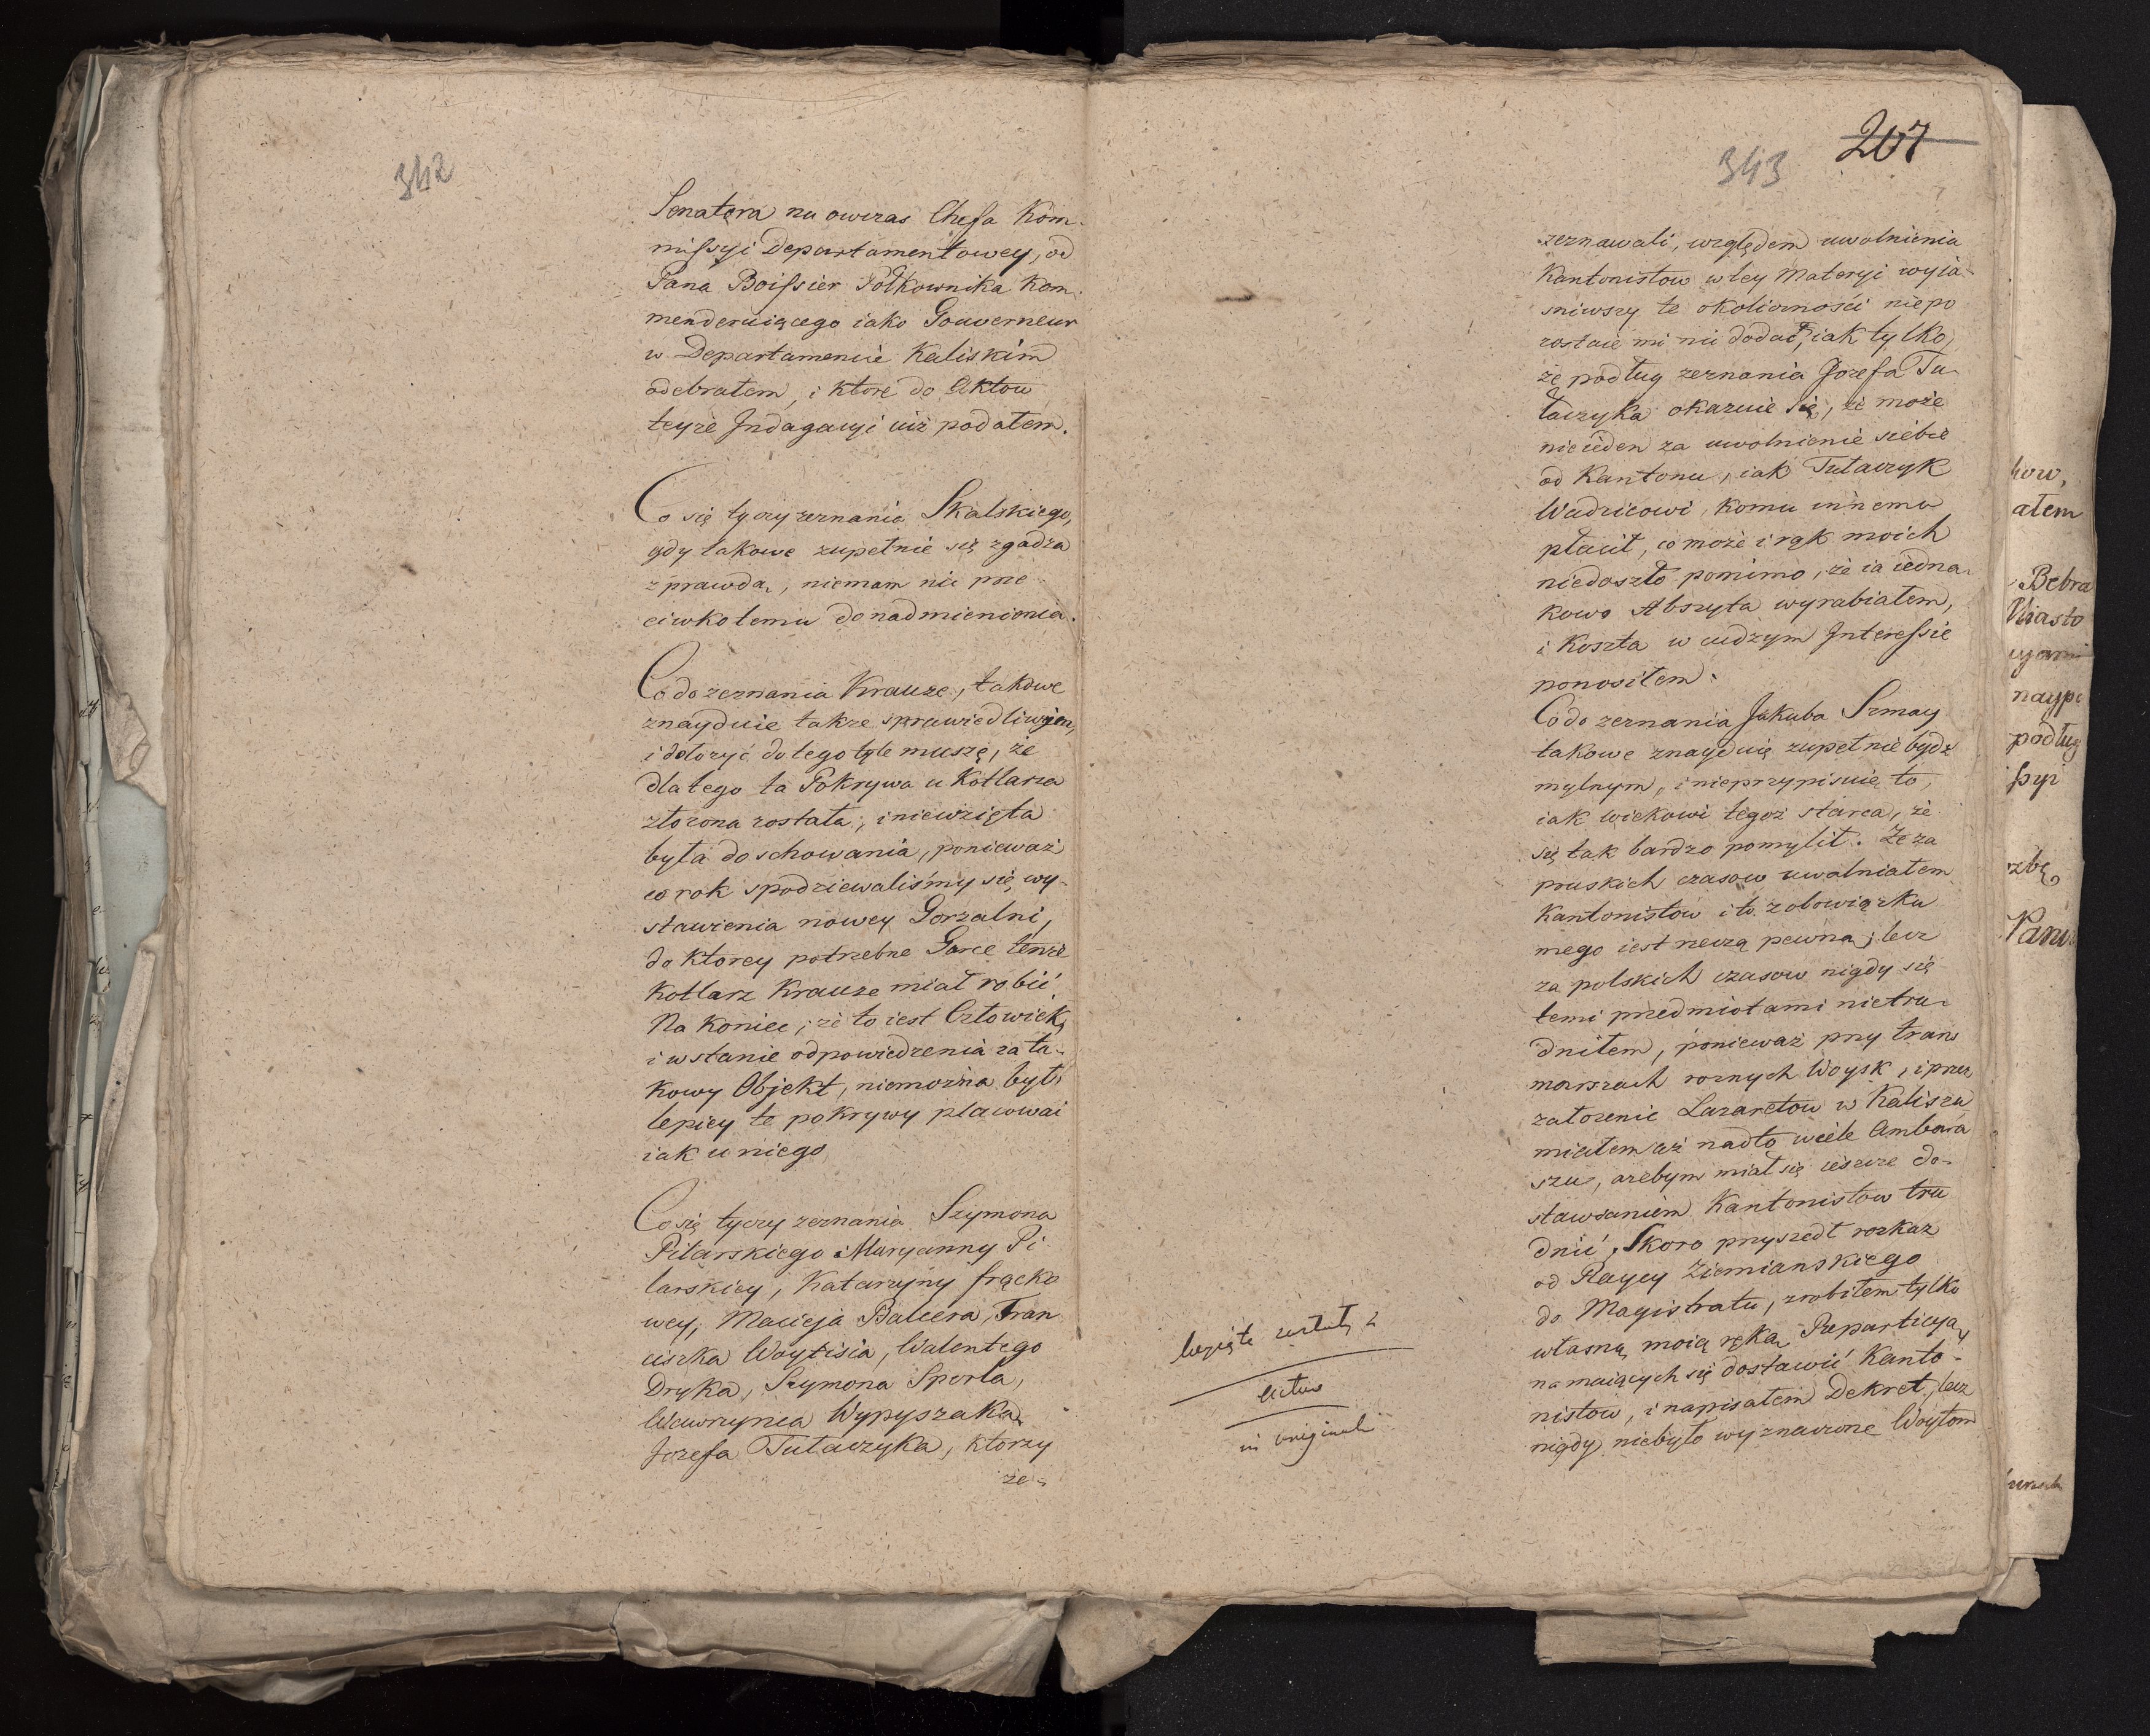 342
Senatora na owczas Chefa Kom-
missyi Departamentowey, od
Pana Boissier Półkownika Kom-
menderuiącego iako Gouverneur
w Departamencie Kaliskim
odebrałem, i które do Aktow
teyże Indagacyi iuż podałem.
Co się tyczy zeznania Skalskiego,
gdy takowe zupełnie się zgadza
z prawdą, niemam nic prze
ciwko temu do nadmienienia.
Co do zeznania Krauze, takowe
znayduie także sprawiedliwym,
i dołożyć do tego tyle muszę, że
dla tego ta Pokrywa u Kotlarza
złożona została, i niewzięta
była do schowania, ponieważ
co rok spodziewaliśmy się wy-
stawienia nowey Gorzalni,
do ktorey potrzebne Garce tenże
Kotlarz Krauze miał robić
Na koniec, że to iest Człowiek,
i w stanie odpowiedzenia za ta-
kowy Objekt, niemożna było
lepiey te pokrywy placować
iak u niego
Co się tyczy zeznania Szymona
Pilarskiego Maryanny Pi
larskiey, Katarzyny Frącko
wey, Macieja Balcera, Fran
ciszka Woytisia, Walentego
Dryka, Szymona Sperla,
Wawrzynca Wypyszaka
Jozefa Tułaczyka, ktorzy
ze-
207
343
zeznawali, względem uwolnienia
Kantonistow w tey Materyi wyia-
sniwszy te okoliczności niepo
zostaie mi nic dodać, iak tylko,
że podług zeznania Jozefa Tu-
łaczyka okazuie się, że może
nieieden za uwolnienie siebie
od Kantonu, iak Tułaczyk
Wadzicowi, komu innemu
płacił, co może i rąk moich
niedoszło pomimo, że ia iedna-
kowo Abszyta wyrabiałem,
i koszta w cudzym Interessie
ponosiłem.
Co do zeznania Jakuba Szmay
takowe znayduię zupełnie bydz
mylnym, i nieprzypisuie to,
iak wiekowi tegoż starca, że
się tak bardzo pomylił. Że za
pruskich czasow uwalniałem
Kantonistow i to z obowiązku
mego iest rzeczą pewną; lecz
za polskich czasow nigdy się
temi przedmiotami nietru-
dniłem, ponieważ przy trans
marszach roznych Woysk, i przez
założenie Lazaretow w Kaliszu
miałem aż nadto wiele Ambara
szu, ażebym miał się ieszcze do-
stawianiem Kantonistow tru
dnić, Skoro przyszedł rozkaz
od Raycy Ziemianskiego
do Magistratu, zrobiłem tylko
własną moią ręką Repartycyą
na maiących się dostawić Kanto-
nistow, i napisałem Dekret, lecz
nigdy niebyło wyznaczone Woytom
wzięte zostały z
aktow
in originali